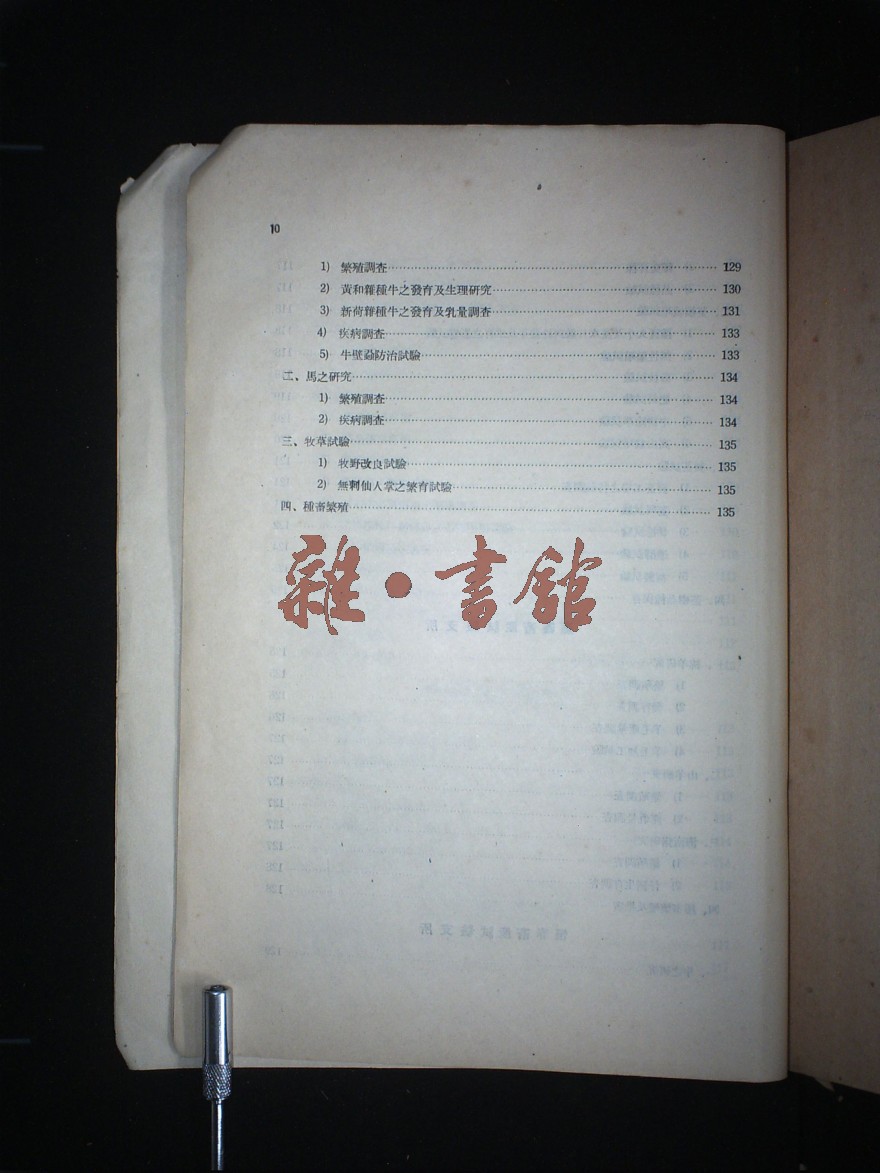 10
1) 繁殖調查 129
2) 黃和雜種牛之發育及生理研究 130
3) 新荷雜種牛之發育及乳量調查 131
4) 疾病調查 133
5) 牛壁蝨防治試驗 133
二、馬之研究 134
1) 繁殖調查 134
2) 疾病調查 134
三、牧草試驗 135
1) 牧野改良試驗 135
2) 無刺仙人掌之繁育試驗 135
四、種畜繁殖 135
雜·書館